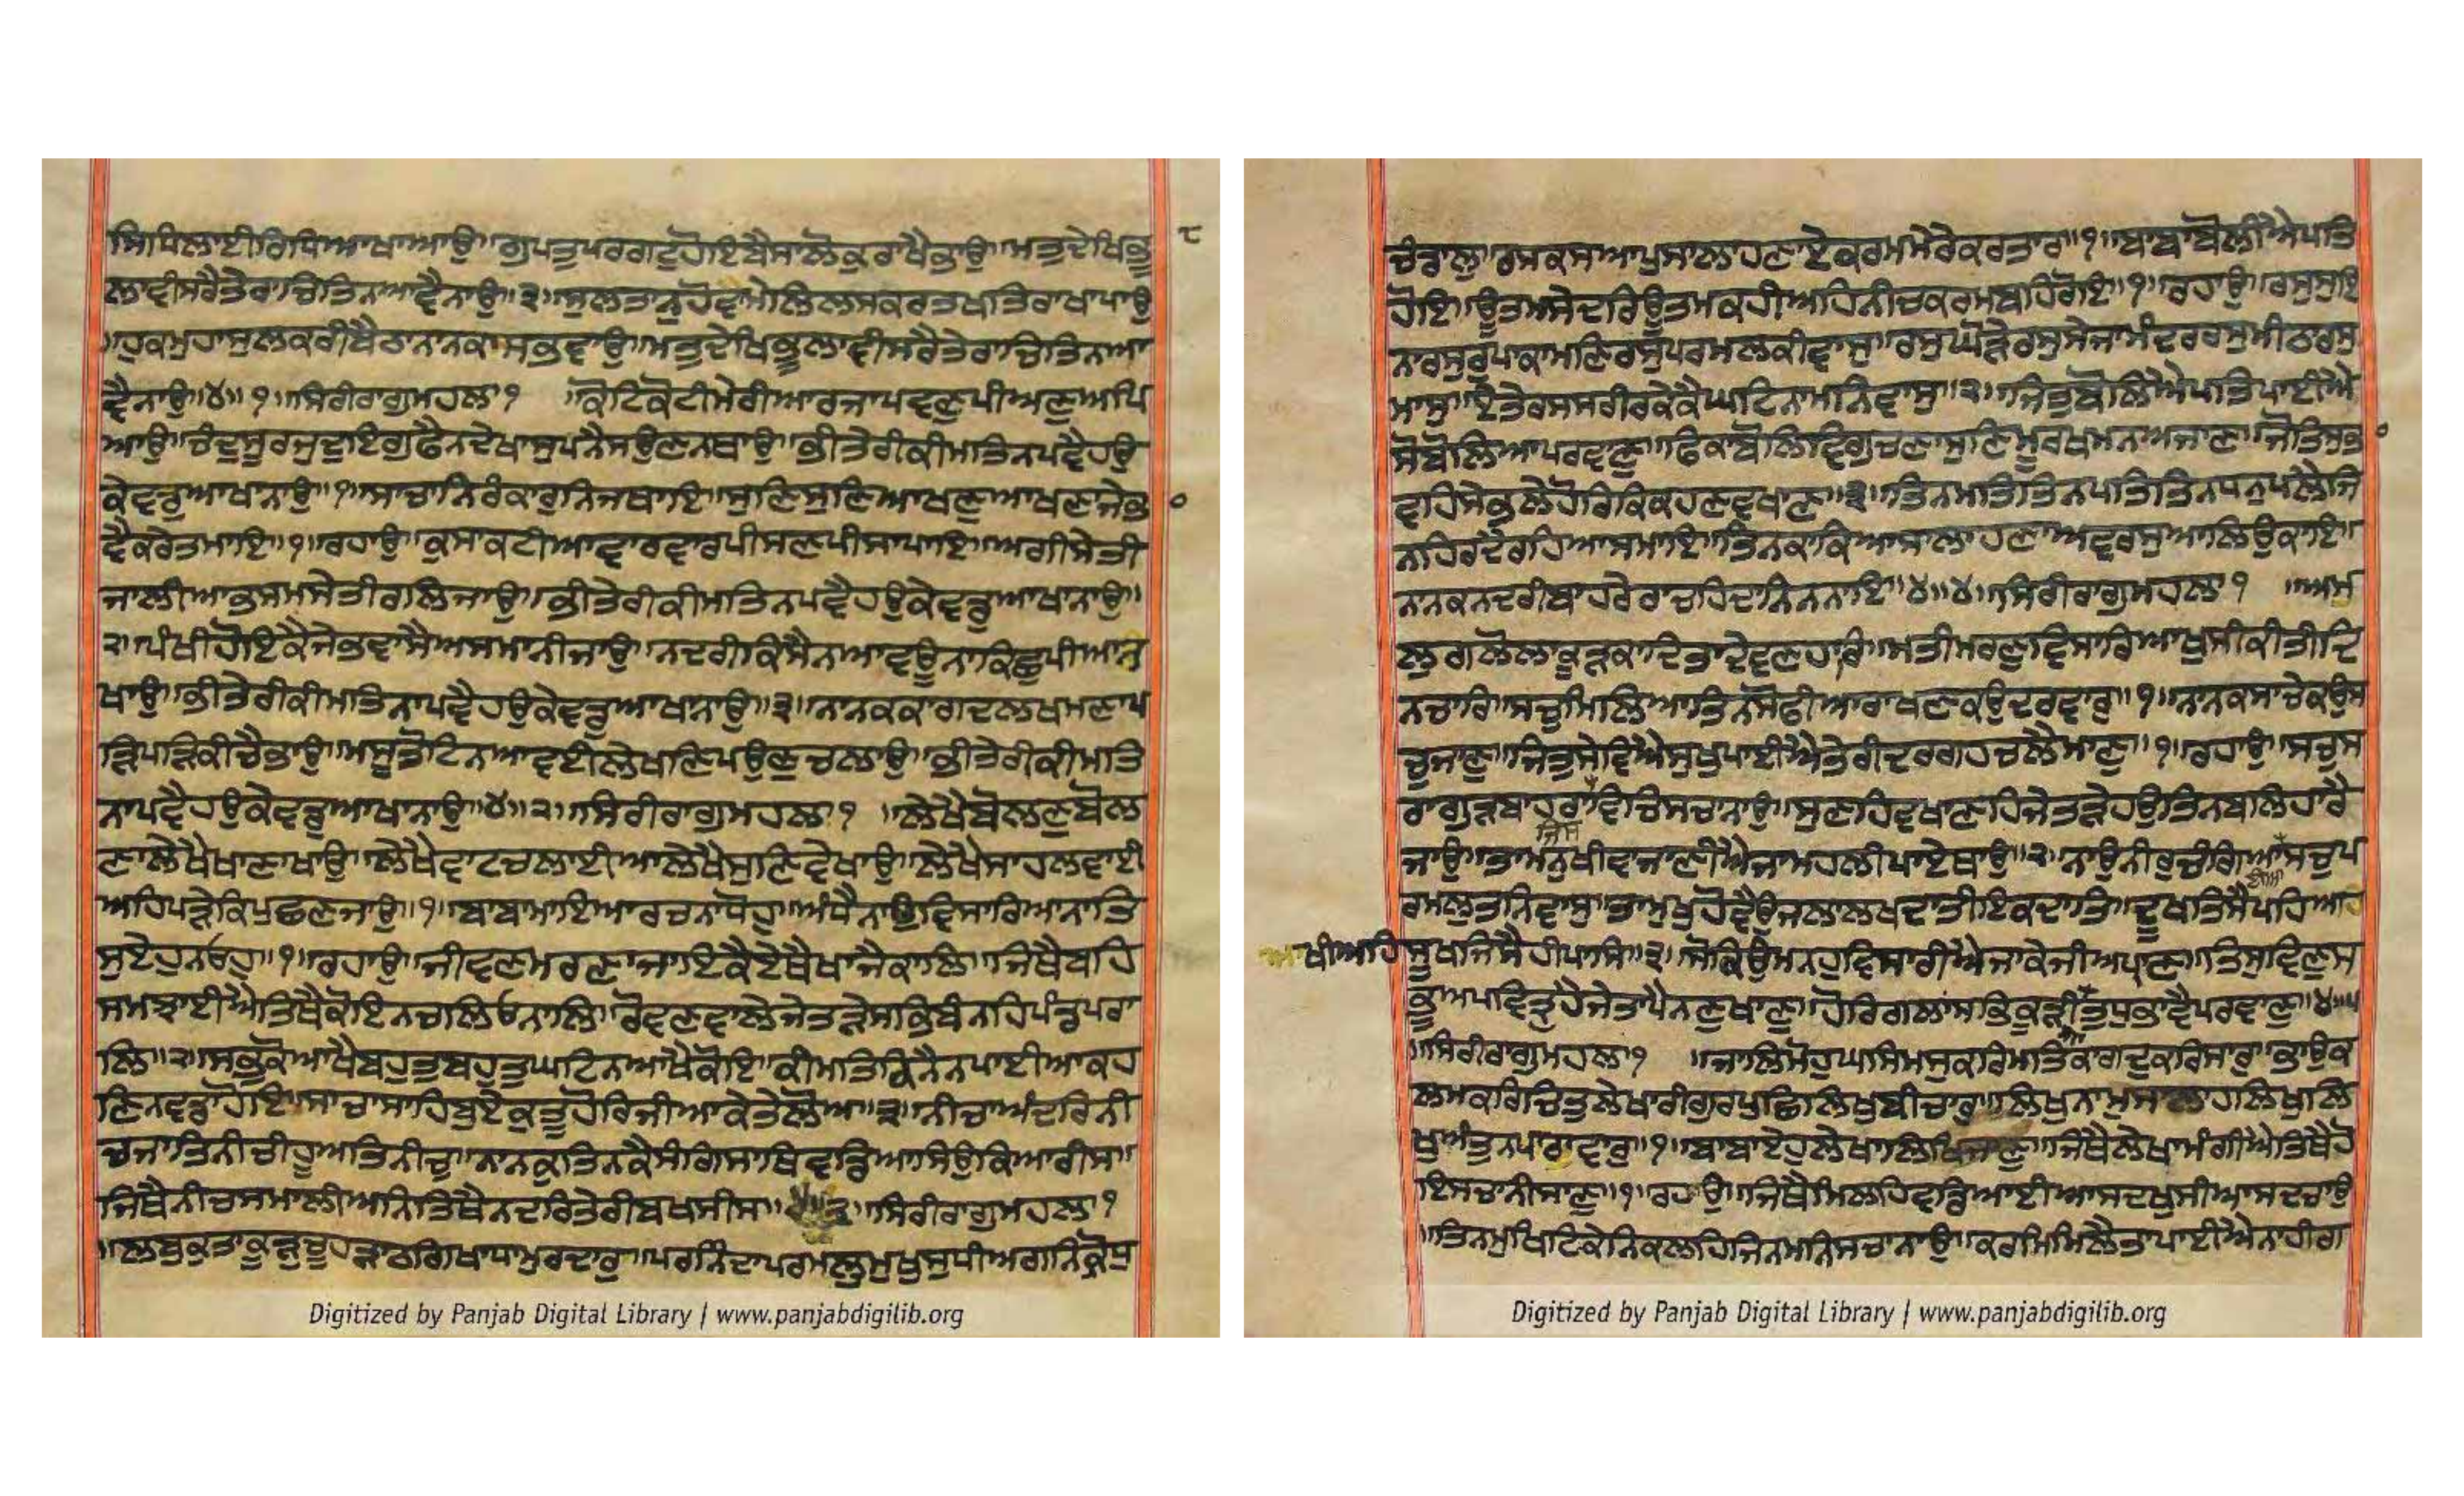 ਸਿਧਿਲਾਈਰਿਧਿਆਖਾਆਉ॥ਗੁਪਤੁਪਰਗਟੁਹੋਇਬੈਸਾਲੋਕੁਰਾਖੈਭਾਉ॥ਮਤੁਦੇਖਿਭੂ
੮
ਲਾਵੀਸਰੈਤੇਰਾਚਿਤਿਨਆਵੈਨਾਉ॥੩॥ਸੁਲਤਾਨੁਹੋਵਾਮੇਲਿਲਸਕਰਤਖਤਿਰਾਖਾਪਾਉ
॥ਹੁਕਮੁਹਾਸਲੁਕਰੀਬੈਠਾਨਾਨਕਾਸਭਵਾਉ॥ਮਤੁਦੇਖਿਭੂਲਾਵੀਸਰੈਤੇਰਾਚਿਤਿਨਆ
ਵੈਨਾਉ॥੪॥੧॥ਸਿਰੀਰਾਗੁਮਹਲਾ੧ ॥ਕੋਟਿਕੋਟੀਮੇਰੀਆਰਜਾਪਵਣੁਪੀਅਣੁਅਪਿ
ਆਉ॥ਚੰਦੁਸੂਰਜੁਦੁਇਗੁਫੈਨਦੇਖਾਸੁਪਨੈਸਉਣਨਥਾਉ॥ਭੀਤੇਰੀਕੀਮਤਿਨਪਵੈਹਉ
ਕੇਵਡੁਆਖਾਨਾਉ॥੧॥ਸਾਚਾਨਿਰੰਕਾਰੁਨਿਜਥਾਇ॥ਸੁਣਿਸੁਣਿਆਖਣੁਆਖਣਾਜੇਭਾ
੦
ਵੈਕਰੇਤਮਾਇ॥੧॥ਰਹਾਉ॥ਕੁਸਾਕਟੀਆਵਾਰਵਾਰਪੀਸਣਪੀਸਾਪਾਇ॥ਅਗੀਸੇਤੀ
ਜਾਲੀਆਭਸਮਸੇਤੀਰਲਿਜਾਉ॥ਭੀਤੇਰੀਕੀਮਤਿਨਪਵੈਹਉਕੇਵਡੁਆਖਾਨਾਉ॥
੨॥ਪੰਖੀਹੋਇਕੈਜੇਭਵਾਸੈਅਸਮਾਨੀਜਾਉ॥ਨਦਰੀਕਿਸੈਨਆਵਊਨਾਕਿਛੁਪੀਆਨ
ਖਾਉ॥ਭੀਤੇਰੀਕੀਮਤਿਨਾਪਵੈਹਉਕੇਵਡੁਆਖਾਨਾਉ॥੩॥ਨਾਨਕਕਾਗਦਲਖਮਣਾਪ
ੜਿਪੜਿਕੀਚੈਭਾਉ॥ਮਸੂਤੋਟਿਨਆਵਈਲੇਖਣਿਪਉਣੁਚਲਾਉ॥ਭੀਤੇਰੀਕੀਮਤਿ
ਨਾਪਵੈਹਉਕੇਵਡੁਆਖਾਨਾਉ॥੪॥੨॥ਸਿਰੀਰਾਗੁਮਹਲਾ੧ ॥ਲੇਖੈਬੋਲਣੁਬੋਲ
ਣਾਲੇਖੈਖਾਣਾਖਾਉ॥ਲੇਖੈਵਾਟਚਲਾਈਆਲੇਖੈਸੁਣਿਵੇਖਾਉ॥ਲੇਖੈਸਾਹਲਵਾਈ
ਅਹਿਪੜੇਕਿਪੁਛਣਜਾਉ॥੧॥ਬਾਬਾਮਾਇਆਰਚਨਾਧੋਹੁ॥ਅੰਧੈਨਾਉਵਿਸਾਰਿਆਨਾਤਿ
ਸੁਏਹੁਨਓਹੁ॥੧॥ਰਹਾਉ॥ਜੀਵਣਮਰਣਾਜਾਇਕੈਏਥੈਖਾਜੈਕਾਲਿ॥ਜਿਥੈਬਹਿ
ਸਮਝਾਈਐਤਿਥੈਕੋਇਨਚਲਿਓਨਾਲਿ॥ਰੋਵਣਵਾਲੇਜੇਤੜੇਸਭਿਬੰਨਹਿਪੰਡਪਰਾ
ਲਿ॥੨॥ਸਭੁਕੋਆਖੈਬਹੁਤੁਬਹੁਤੁਘਟਿਨਆਖੈਕੋਇ॥ਕੀਮਤਿਕਿਨੈਨਪਾਈਆਕਹ
ਣਿਨਵਡਾਹੋਇ॥ਸਾਚਾਸਾਹਿਬੁਏਕੁਤੂਹੋਰਿਜੀਆਕੇਤੇਲੋਅ॥੩॥ਨੀਚਾਅੰਦਰਿਨੀ
ਚਜਾਤਿਨੀਚੀਹੂਅਤਿਨੀਚੁ॥ਨਾਨਕੁਤਿਨਕੈਸੰਗਿਸਾਥਿਵਡਿਆਸਿਉਕਿਆਰੀਸ॥
ਜਿਥੈਨੀਚਸਮਾਲੀਅਨਿਤਿਥੈਨਦਰਿਤੇਰੀਬਖਸੀਸ॥੪॥੩॥ਸਿਰੀਰਾਗੁਮਹਲਾ੧
॥ਲਬੁਕੁਤਾਕੂੜੁਚੂਹੜਾਠਗਿਖਾਧਾਮੁਰਦਾਰੁ॥ਪਰਨਿੰਦਾਪਰਮਲੁਮੁਖੁਸੁਧੀਅਗਨਿਕ੍ਰੋਧੁ
Digitized by Panjab Digital Library | www.panjabdigilib.org
ਚੰਡਾਲੁ॥ਰਸਕਸਆਪੁਸਾਲਾਹਣਾਏਕਰਮਮੇਰੇਕਰਤਾਰ॥੧॥ਬਾਬਾਬੋਲੀਐਪਤਿ
ਹੋਇ॥ਊਤਮਸੇਦਰਿਊਤਮਕਹੀਅਹਿਨੀਚਕਰਮਬਹਿਰੋਇ॥੧॥ਰਹਾਉ॥ਰਸੁਸੁਇ
ਨਾਰਸੁਰੁਪਾਕਾਮਣਿਰਸੁਪਰਮਲਕੀਵਾਸੁ॥ਰਸੁਘੋੜੇਰਸੁਸੇਜਾਮੰਦਰਰਸੁਮੀਠਾਰਸੁ
ਮਾਸੁ॥ਏਤੇਰਸਸਰੀਰਕੇਕੈਘਟਿਨਾਮਨਿਵਾਸੁ॥੨॥ਜਿਤੁਬੋਲਿਐਪਤਿਪਾਈਐ
ਸੋਬੋਲਿਆਪਰਵਾਣੁ॥ਫਿਕਾਬੋਲਿਵਿਗੁਚਣਾਸੁਣਿਮੂਰਖਮਨਅਜਾਣ॥ਜੋਤਿਸੁਭਾ
੦
ਵਹਿਸੇਭਲੇਹੋਰਿਕਿਕਹਣਵਖਾਣ॥੩॥ਤਿਨਮਤਿਤਿਨਪਤਿਤਿਨਧਨੁਪਲੈਜਿ
ਨਹਿਰਦੈਰਹਿਆਸਮਾਇ॥ਤਿਨਕਾਕਿਆਸਾਲਾਹਣਾਅਵਰਸੁਆਲਿਉਕਾਇ॥
ਨਾਨਕਨਦਰੀਬਾਹਰੇਰਾਚਹਿਦਾਨਿਨਨਾਇ॥੪॥੪॥ਸਿਰੀਰਾਗੁਮਹਲਾ੧ ॥ਅਮ
ਲੁਗਲੋਲਾਕੂੜਕਾਦਿਤਾਦੇਵਣਹਾਰਿ॥ਮਤੀਮਰਣੁਵਿਸਾਰਿਆਖੁਸੀਕੀਤੀਦਿ
ਨਚਾਰਿ॥ਸਚੁਮਿਲਿਆਤਿਨਸੋਫੀਆਰਾਖਣਕਉਦਰਵਾਰੁ॥੧॥ਨਾਨਕਸਾਚੇਕਉਸ
ਚੁਜਾਣੁ॥ਜਿਤੁਸੇਵਿਐਸੁਖੁਪਾਈਐਤੇਰੀਦਰਗਹਚਲੈਮਾਣੁ॥੧॥ਰਹਾਉ॥ਸਚੁਸ
ਰਾਗੁੜਬਾਹਰਾਵਿਚਿਸਚਨਾਉ॥ਸੁਣਹਿਵਖਾਣਹਿਜੇਤੜੇਹਉਤਿਨਬਲਿਹਾਰੈ
ਜਿਸ
ਜਾਉ॥ਤਾਮਨੁਖੀਵਾਜਾਣੀਐਜਾਮਹਲੀਪਾਏਥਾਉ॥੨॥ਨਾਉਨੀਰੁਚੰਗਿਆਸਚੁਪ
ਰਮਲੁਤਨਿਵਾਸੁ॥ਤਾਮੁਖੁਹੋਵੈਉਜਲਾਲਖਦਾਤੀਇਕਦਾਤਿ॥ਦੂਖਤਿਸੈਪਹਿਆ
ਖੀਅਹਿਸੂਖਜਿਸੈਹੀਪਾਸਿ॥੩॥ਸੋਕਿਉਮਨਹੁਵਿਸਾਰੀਐਜਾਕੇਜੀਅਪਰਾਣ॥ਤਿਸੁਵਿਣੁਸ
ਭੁਅਪਵਿਤੁਹੈਜੇਤਾਪੈਨਣੁਖਾਣੁ॥ਹੋਰਿਗਲਾਂਸਭਿਕੂੜੀਆਤੁਧੁਭਾਵੈਪਰਵਾਣੁ॥੪॥੫
॥ਸਿਰੀਰਾਗੁਮਹਲਾ੧ ॥ਜਾਲਿਮੋਹੁਘਸਿਮਸੁਕਰਿਮਤਿਕਾਗਦੁਕਰਿਸਾਰੁ॥ਭਾਉਕ
ਲਮਕਰਿਚਿਤੁਲੇਖਾਰੀਗੁਰਪੁਛਿਲਿਖੁਬੀਚਾਰੁ॥ਲਿਖੁਨਾਮੁਸਾਲਾਹਲਿਖੁਲਿ
ਖੁਅੰਤੁਨਪਾਰਾਵਾਰੁ॥੧॥ਬਾਬਾਏਹੁਲੇਖਾਲਿਖਿਜਾਣੁ॥ਜਿਥੈਲੇਖਾਮੰਗੀਐਤਿਥੈਹੋ
ਇਸਚਾਨੀਸਾਣੁ॥੧॥ਰਹਾਉ॥ਜਿਥੈਮਿਲਹਿਵਡਿਆਈਆਸਦਖੁਸੀਆਸਦਚਾਉ
॥ਤਿਨਮੁਖਿਟਿਕੇਨਿਕਲਹਿਜਿਨਮਨਿਸਚਾਨਾਉ॥ਕਰਮਿਮਿਲੈਤਾਪਾਈਐਨਾਹੀਗ
Digitized by Panjab Digital Library | www.panjabdigilib.org